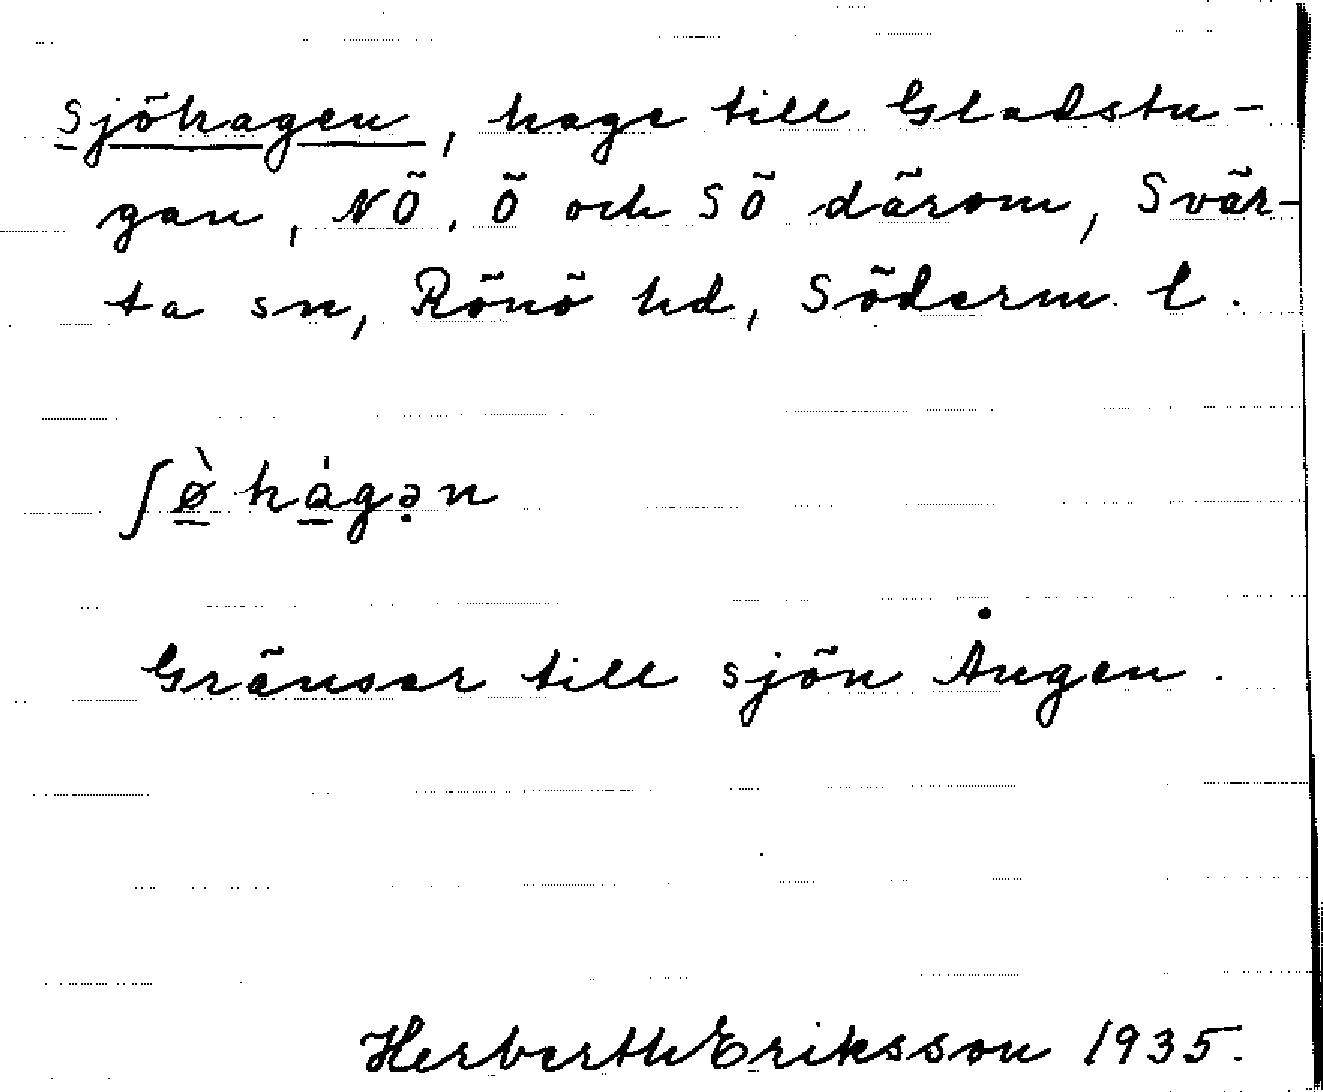 Sjöhagen, hage till Gladstu-
gan, NÖ, Ö och SÖ därom, Svär-
ta sn, Rönö hd, Söderm. l.
ʃø̠̀ha̠̍gə̣n
Gränsar till sjön Ången.
Herberth Eriksson 1935.